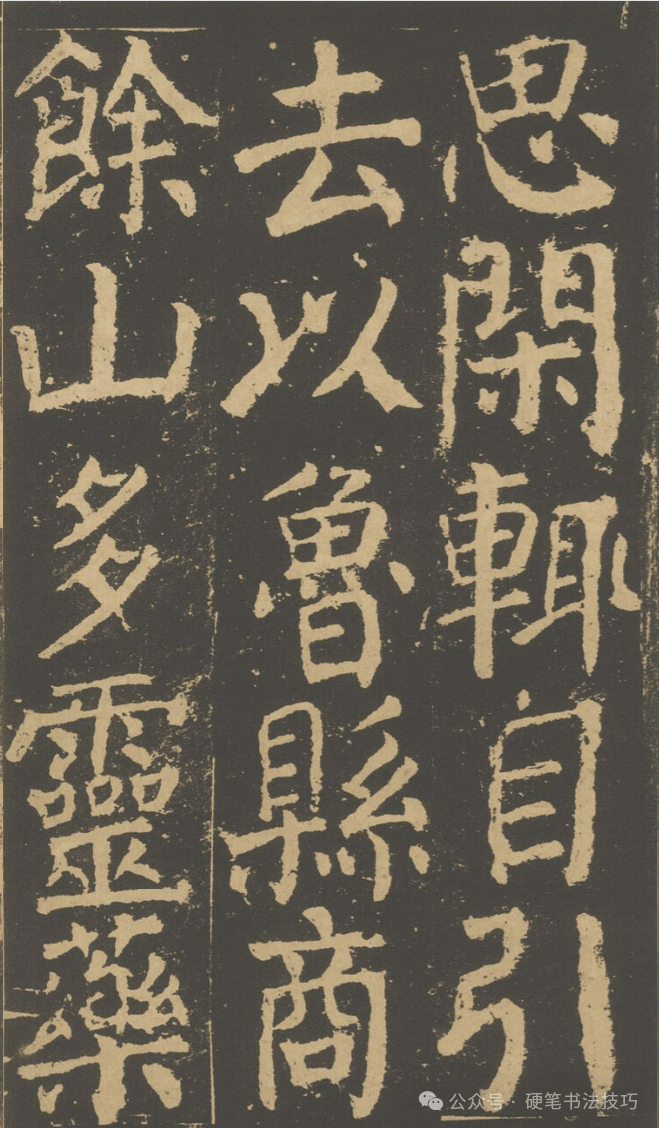 思閑輙自引
去以魯縣商
餘山多靈藥
公众号·硬笔书法技巧